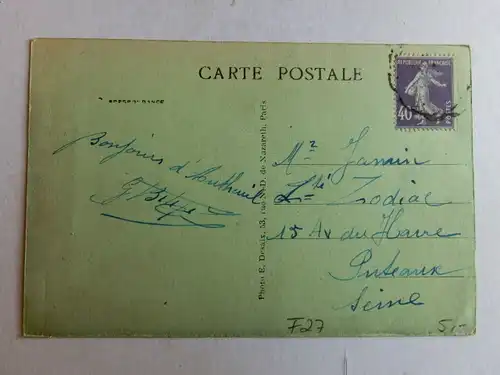 CARTE POSTALE
REPUBLIQUE FRANÇAISE
POSTES
40
Bonjour d'
Photo E. Desaix, 53, rue N.-D. de Nazareth, Paris
Mr Jamin
Sté Zodiac
15 Av du Havre
Puteaux
Seine
F27
5,-